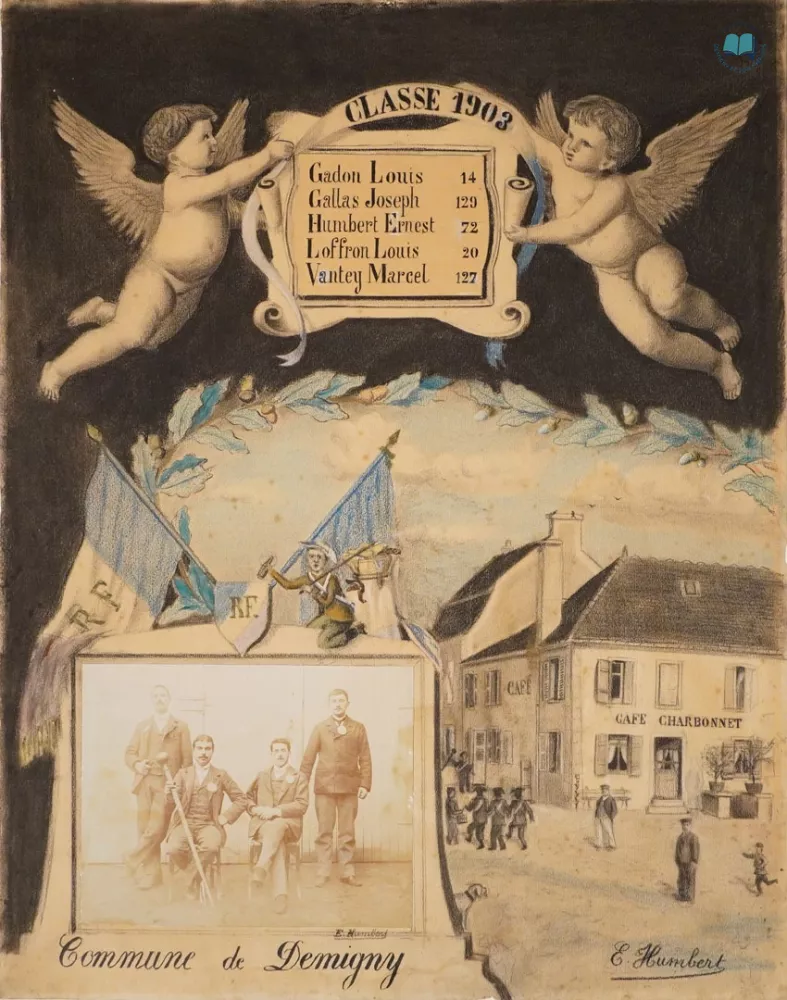 CLASSE 1903
Gadon Louis 14
Gallas Joseph 129
Humbert Ernest 72
Loffron Louis 20
Vantey Marcel 127
RF
RF.
CAFÉ
CAFE CHARBONNET
E. Humbert
Commune de Demigny
E. Humbert